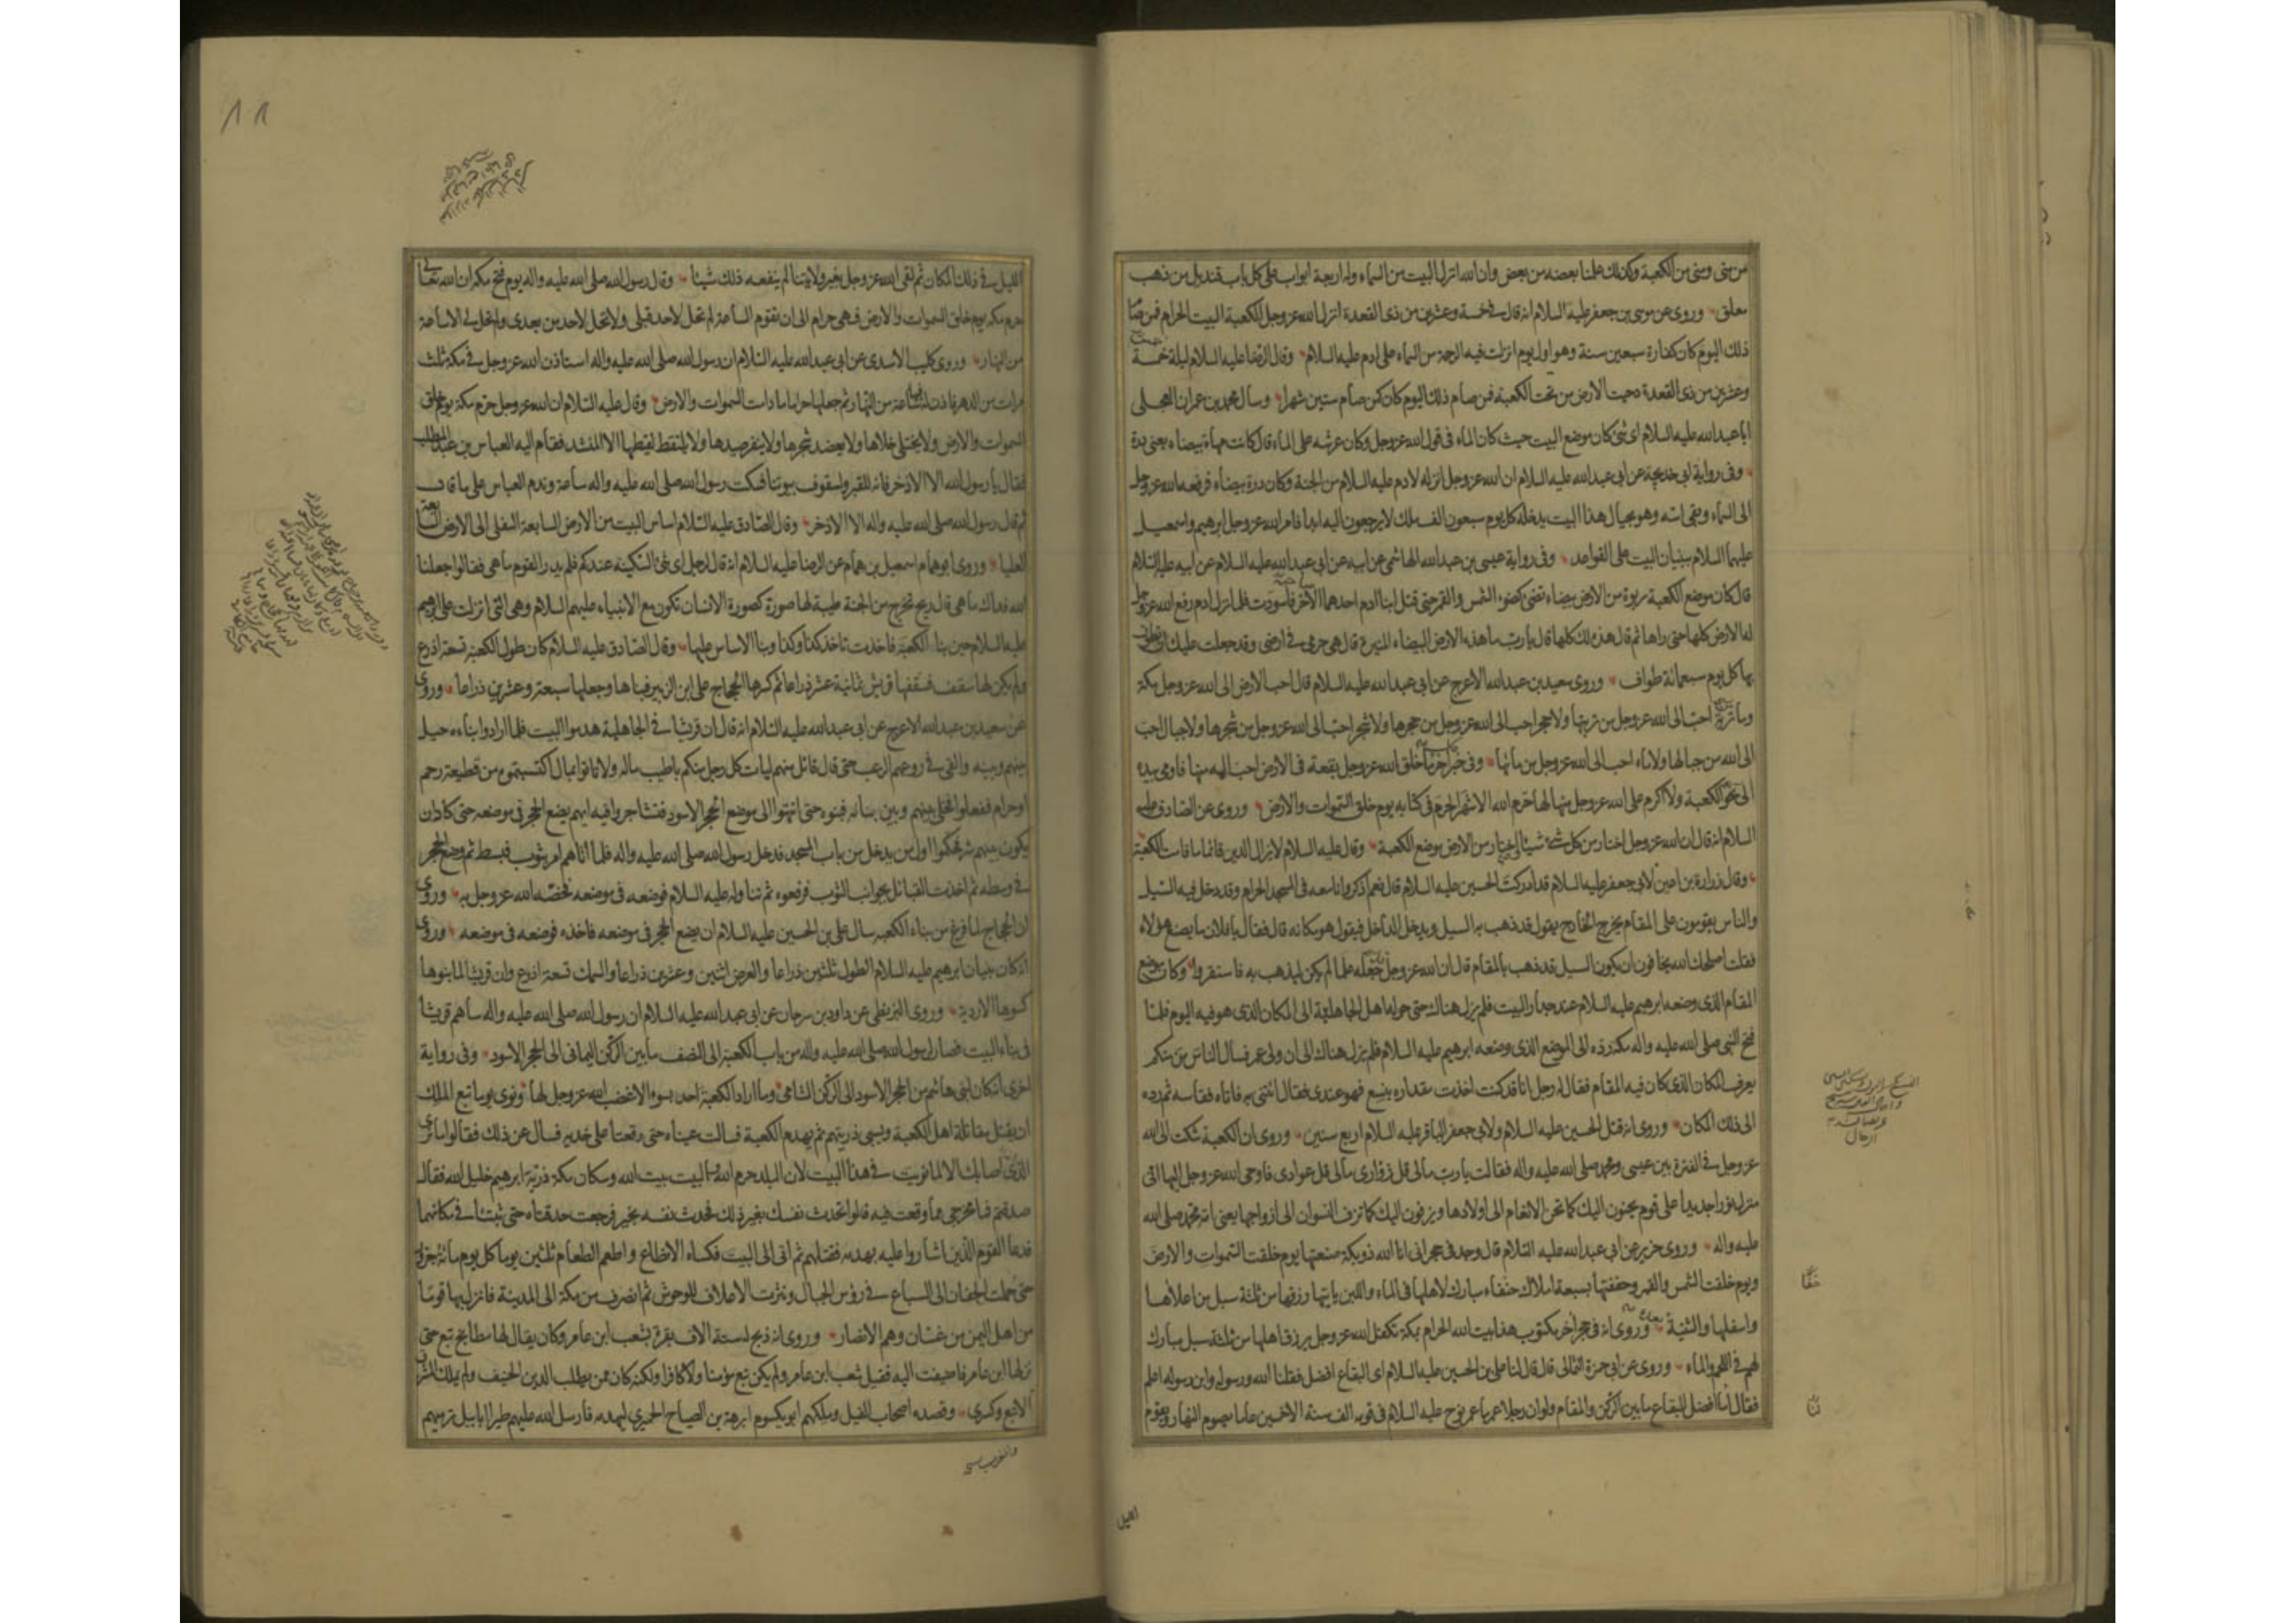 من منى ومنى من الكعبة وكذلك علمنا بعضه من بعض وان الله انزل البيت من السماء وله اربعة ابواب على كل باب قنديل من ذهب
معلق وروى عن موسى بن جعفر عليه السلام انه قال فى خمسة وعشرين من ذى القعدة انزل الله عز وجل الكعبة البيت الحرام فمن صام
ذلك اليوم كان كفارة سبعين سنة وهو اول يوم انزلت فيه الرحمة من السماء على ادم عليه السلام وقال الرضا عليه السلام ليلة خمسة
وعشرين من ذى القعدة دحيت الارض من تحت الكعبة فمن صام ذلك اليوم كان كمن صام ستين شهرا وسال محمد بن عمران العجلى
ابا عبد الله عليه السلام اى شئ كان موضع البيت حيث كان الماء فى قول الله عز وجل وكان عرشه على الماء قال كانت مهاة بيضاء يعنى درة
وفى رواية ابى خديجة عن ابى عبد الله عليه السلام ان الله عز وجل انزله لادم عليه السلام من الجنة وكان درة بيضاء فرفعه الله عز وجل
الى السماء وبقى اسه وهو بحيال هذا البيت يدخله كل يوم سبعون الف ملك لا يرجعون اليه ابدا فامر الله عز وجل ابرهيم واسمعيل
عليهما السلام ببنيان البيت على القواعد وفى رواية عيسى بن عبد الله الهاشمى عن ابيه عن ابى عبد الله عليه السلام عن ابيه عليه السلام
قال كان موضع الكعبة ربوة من الارض بيضاء تضئ كضوء الشمس والقمر حتى قتل ابنا ادم احدهما الاخر فاسودت فلما نزل ادم رفع الله عز وجل
له الارض كلها حتى راها ثم قال هذه لك كلها قال يا رب ما هذه الارض البيضاء المنيرة قال هى حرمى فى ارضى وقد جعلت عليك ان تطوف
بها كل يوم سبعمائة طواف وروى سعيد بن عبد الله الاعرج عن ابى عبد الله عليه السلام قال احب الارض الى الله عز وجل مكة
وما تربة احب الى الله عز وجل من تربتها ولا حجر احب الى الله عز وجل من حجرها ولا شجر احب الى الله عز وجل من شجرها ولا جبال احب
الى الله من جبالها ولا ماء احب الى الله عز وجل من مائها وفى خبر اخر ما خلق الله عز وجل بقعة فى الارض احب اليه منها فاومى بيده
الى نحو الكعبة ولا اكرم على الله عز وجل منها لها حرم الله الاشهر الحرم فى كتابه يوم خلق السموات والارض وروى عن الصادق عليه
السلام انه قال ان الله عز وجل اختار من كل شئ شيئا اختار من الارض موضع الكعبة وقال عليه السلام لا يزال الدين قائما ما قامت الكعبة
وقال زرارة بن اعين لابى جعفر عليه السلام قد ادركت الحسين عليه السلام قال نعم اذكر وانا معه فى المسجد الحرام وقد دخل فيه السيل
والناس يقومون على المقام يخرج الخارج يقول قد ذهب به السيل ويدخل الداخل فيقول هو مكانه قال فقال يا فلان ما يصنع هؤلاء
فقلت اصلحك الله يخافون ان يكون السيل قد ذهب بالمقام قال ان الله عز وجل جعله علما لم يكن ليذهب به فاستقروا وكان موضع
المقام الذى وضعه ابرهيم عليه السلام عند جدار البيت فلم يزل هناك حتى حوله اهل الجاهلية الى المكان الذى هو فيه اليوم فلما
فتح النبى صلى الله عليه واله مكة رده الى الموضع الذى وضعه ابرهيم عليه السلام فلم يزل هناك الى ان ولى عمر فسال الناس من منكم
يعرف المكان الذى كان فيه المقام فقال له رجل انا قد كنت اخذت مقداره بنسع فهو عندى فقال ائتنى به فاتاه فقاسه ثم رده
الى ذلك المكان وروى انه قتل الحسين عليه السلام ولابى جعفر الباقر عليه السلام اربع سنين وروى ان الكعبة شكت الى الله
عز وجل فى الفترة بين عيسى ومحمد صلى الله عليه واله فقالت يا رب مالى قل زوارى مالى قل عوادى فاوحى الله عز وجل اليها انى
منزل نورا جديدا على قوم يحنون اليك كما تحن الانعام الى اولادها ويزفون اليك كما تزف النسوان الى ازواجها يعنى امة محمد صلى الله
عليه واله وروى حريز عن ابى عبد الله عليه السلام قال وجد فى حجر انى انا الله ذو بكة صنعتها يوم خلقت السموات والارض
ويوم خلقت الشمس والقمر وحففتها بسبعة املاك حنفاء مبارك لاهلها فى الماء واللبن ياتيها رزقها من ثلثة سبل من اعلاها
واسفلها والثنية وروى انه فى حجر اخر مكتوب هذا بيت الله الحرام بمكة تكفل الله عز وجل برزق اهلها من ثلثة سبل مبارك
لهم فى اللحم والماء وروى عن ابى حمزة الثمالى قال قال لنا على بن الحسين عليه السلام اى البقاع افضل فقلنا الله ورسوله وابن رسوله اعلم
فقال لنا افضل البقاع ما بين الركن والمقام ولو ان رجلا عمر ما عمر نوح عليه السلام فى قومه الف سنة الا خمسين عاما يصوم النهار ويقوم
الليل
الليل فى ذلك المكان ثم لقى الله عز وجل بغير ولايتنا لم ينفعه ذلك شيئا وقال رسول الله صلى الله عليه واله يوم فتح مكة ان الله تعالى
حرم مكة يوم خلق السموات والارض فهى حرام الى ان تقوم الساعة لم تحل لاحد قبلى ولا تحل لاحد من بعدى ولم تحل لى الا ساعة
من النهار وروى كليب الاسدى عن ابى عبد الله عليه السلام ان رسول الله صلى الله عليه واله استاذن الله عز وجل فى مكة ثلث
مرات من الدهر فاذن له فيها ساعة من النهار ثم جعلها حراما ما دامت السموات والارض وقال عليه السلام ان الله عز وجل حرم مكة يوم خلق
السموات والارض ولا يختلى خلاها ولا يعضد شجرها ولا ينفر صيدها ولا يلتقط لقطتها الا المنشد فقام اليه العباس بن عبد المطلب
فقال يا رسول الله الا الاذخر فانه للقبر ولسقوف بيوتنا فسكت رسول الله صلى الله عليه واله ساعة وندم العباس على ما قال
ثم قال رسول الله صلى الله عليه واله الا الاذخر وقال الصادق عليه السلام اساس البيت من الارض السابعة السفلى الى الارض السابعة
العليا وروى ابو همام اسمعيل بن همام عن الرضا عليه السلام انه قال لرجل اى شئ السكينة عندكم فلم يدر القوم ما هى فقالوا جعلنا
الله فداك ما هى قال ريح تخرج من الجنة طيبة لها صورة كصورة الانسان تكون مع الانبياء عليهم السلام وهى التى انزلت على ابرهيم
عليه السلام حين بنا الكعبة فاخذت تاخذ كذا وكذا وبنا الاساس عليها وقال الصادق عليه السلام كان طول الكعبة تسعة اذرع
ولم يكن لها سقف فسقفها قريش ثمانية عشر ذراعا ثم كسرها الحجاج على ابن الزبير فبناها وجعلها سبعة وعشرين ذراعا وروى
عن سعيد بن عبد الله الاعرج عن ابى عبد الله عليه السلام انه قال ان قريشا فى الجاهلية هدموا البيت فلما ارادوا بناءه حيل
بينهم وبينه والقى فى روعهم الرعب حتى قال قائل منهم ليات كل رجل منكم باطيب ماله ولا تاتوا بمال اكتسبتموه من قطيعة رحم
او حرام ففعلوا فخلى بينهم وبين بنائه فبنوه حتى انتهوا الى موضع الحجر الاسود فتشاجروا فيه ايهم يضع الحجر فى موضعه حتى كاد ان
يكون بينهم شر فحكموا اول من يدخل من باب المسجد فدخل رسول الله صلى الله عليه واله فلما اتاهم امر بثوب فبسط ثم وضع الحجر
فى وسطه ثم اخذت القبائل بجوانب الثوب فرفعوه ثم تناوله عليه السلام فوضعه فى موضعه فخصه الله عز وجل به وروى
ان الحجاج لما فرغ من بناء الكعبة سال على بن الحسين عليه السلام ان يضع الحجر فى موضعه فاخذه فوضعه فى موضعه وروى
انه كان بنيان ابرهيم عليه السلام الطول ثلثين ذراعا والعرض اثنين وعشرين ذراعا والسمك تسعة اذرع وان قريشا لما بنوها
كسوها الاردية وروى البزنطى عن داود بن سرحان عن ابى عبد الله عليه السلام ان رسول الله صلى الله عليه واله ساهم قريشا
فى بناء البيت فصار لرسول الله صلى الله عليه واله من باب الكعبة الى النصف ما بين الركن اليمانى الى الحجر الاسود وفى رواية
اخرى انه كان لبنى هاشم من الحجر الاسود الى الركن الشامى وما اراد الكعبة احد بسوء الا غضب الله عز وجل لها ونوى يوما تبع الملك
ان يقتل مقاتلة اهل الكعبة ويسبى ذريتهم ثم يهدم الكعبة فسالت عيناه حتى وقعتا على خديه فسال عن ذلك فقالوا ما نرى
الذى اصابك الا لما نويت فى هذا البيت لان البلد حرم الله والبيت بيت الله وسكان مكة ذرية ابرهيم خليل الله فقال
صدقتم فما مخرجى مما وقعت فيه قالوا تحدث نفسك بغير ذلك فحدث نفسه بخير فرجعت حدقتاه حتى ثبتتا فى مكانهما
فدعا القوم الذين اشاروا عليه بهدمه فقتلهم ثم اتى الى البيت فكساه الانطاع واطعم الطعام ثلثين يوما كل يوم مائة جزور
حتى حملت الجفان الى السباع فى رؤس الجبال ونثرت الاعلاف للوحوش ثم انصرف من مكة الى المدينة فانزل بها قوما
من اهل اليمن من غسان وهم الانصار وروى انه ذبح له ستة الاف بقرة بشعب ابن عامر وكان يقال لها مطابخ تبع حتى
نزلها ابن عامر فاضيفت اليه فقيل شعب ابن عامر ولم يكن تبع مؤمنا ولا كافرا ولكنه كان ممن يطلب الدين الحنيف ولم يملك المشرق
الا تبع وكسرى وقصده اصحاب الفيل وملكهم ابو يكسوم ابرهة بن الصباح الحميرى ليهدمه فارسل الله عليهم طيرا ابابيل ترميهم